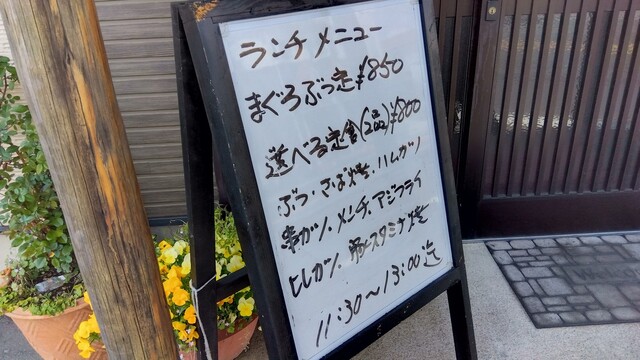 ランチメニュー
まぐろぶつ定¥850
選べる定食(2品)¥800
ぶつ・さば焼・ハムカツ
串カツ、メンチ、アジフライ
ヒレカツ、スタミナ焼
11:30〜13:00迄